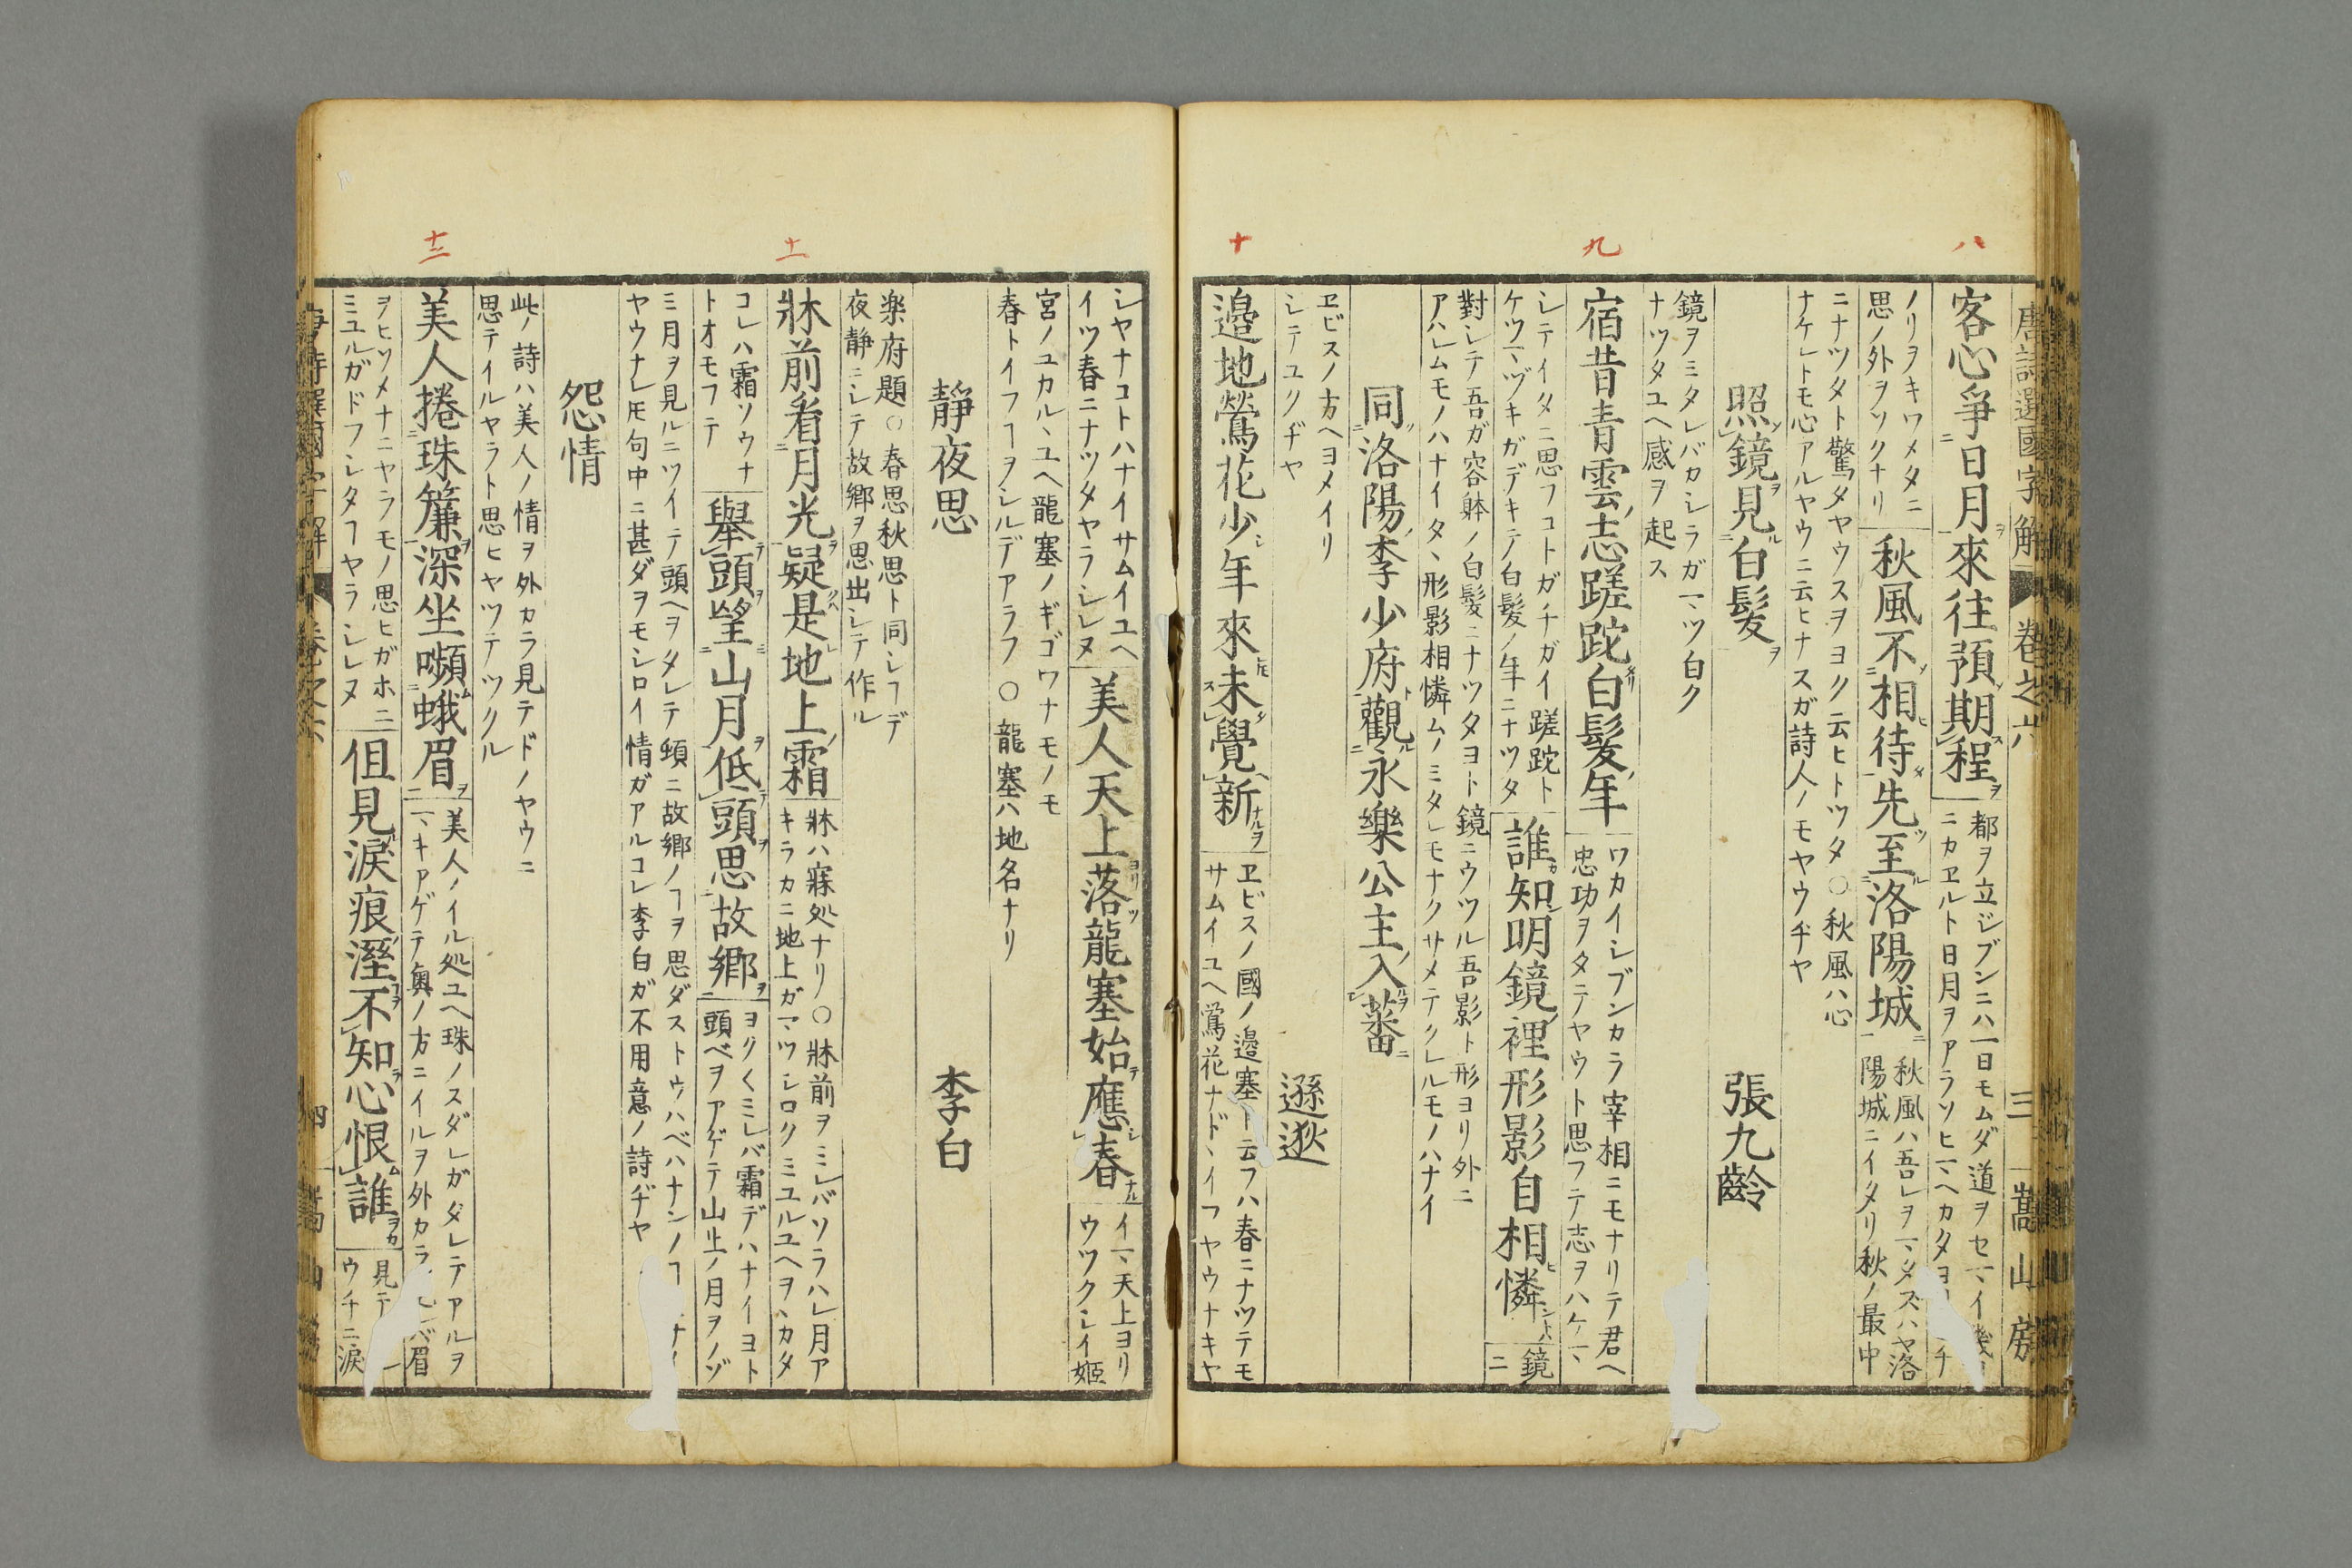 八
九
十
十一
十二
唐詩選國字解
卷之六
三
嵩山房
客心爭日月來往預期程
都ヲ立ジブンニハ一日モムダ道ヲセマイ
ニカヱルト日月ヲアラソヒマヘカタヨ
ノリヲキワメタニ
思ノ外ヲソクナリ
秋風不相待先至洛陽城
秋風ハ吾レヲマタズハヤ洛
陽城ニイタリ秋ノ最中
ニナツタト驚タヤウスヲヨク云ヒトツタ○秋風ハ心
ナケレトモ心アルヤウニ云ヒナスガ詩人ノモヤウヂヤ
照鏡見白髪
張九齡
鏡ヲミタレバカシラガマツ白ク
ナツタユヘ感ヲ起ス
宿昔青雲志蹉跎白髪年
ワカイシブンカラ宰相ニモナリテ君ヘ
忠功ヲタテヤウト思フテ志ヲハケマ
シテイタニ思フコトガチガイ蹉跎ト
ケツマヅキガデキテ白髪ノ年ニナツタ
誰知明鏡裡形影自相憐
鏡
ニ
對シテ吾ガ容躰ノ白髪ニナツタヨト鏡ニウツル吾影ト形ヨリ外ニ
アハレムモノハナイタヾ形影相憐ムノミタレモナクサメテクレルモノハナイ
同洛陽李少府觀永樂公主入蕃
孫逖
ヱビスノ方ヘヨメイリ
シテユクヂヤ
邉地鶯花少年來未覺新
ヱビスノ國ノ邉塞ト云フハ春ニナツテモ
サムイユヘ鶯花ナドヽイフヤウナキヤ
シヤナコトハナイサムイユヘ
イツ春ニナツタヤラシレヌ
美人天上落龍塞始應春
イマ天上ヨリ
ウツクシイ姫
宮ノユカルヽユヘ龍塞ノギゴワナモノモ
春トイフヿヲシルデアラフ○龍塞ハ地名ナリ
靜夜思
李白
楽府題○春思秋思ト同シヿデ
夜静ニシテ故郷ヲ思出シテ作ル
牀前看月光疑是地上霜
牀ハ寐処ナリ○牀前ヲミレバソラハレ月ア
キラカニ地上ガマツシロクミユルユヘヲヽカタ
コレハ霜ソウナ
トオモフテ
舉頭望山月低頭思故郷
ヨクくミレバ霜デハナイヨト
頭ベヲアゲテ山上ノ月ヲノゾ
ミ月ヲ見ルニツイテ頭ヘヲタレテ頓ニ故郷ノヿヲ思ダストウハベハナンノヿ
ヤウナレ𪜈句中ニ甚ダヲモシロイ情ガアルコレ李白ガ不用意ノ詩ヂヤ
怨情
此ノ詩ハ美人ノ情ヲ外カラ見テドノヤウニ
思テイルヤラト思ヒヤツテツクル
美人捲珠簾深坐嚬蛾眉
美人ノイル処ユヘ珠ノスダレガタレテアルヲ
マキアゲテ奥ノ方ニイルヲ外カラ
バ眉
ヲヒソメナニヤラモノ思ヒガホニ
ミユルガドフシタヿヤラシレヌ
但見淚痕溼不知心恨誰
見テ
ウチニ淚
卷之六
四